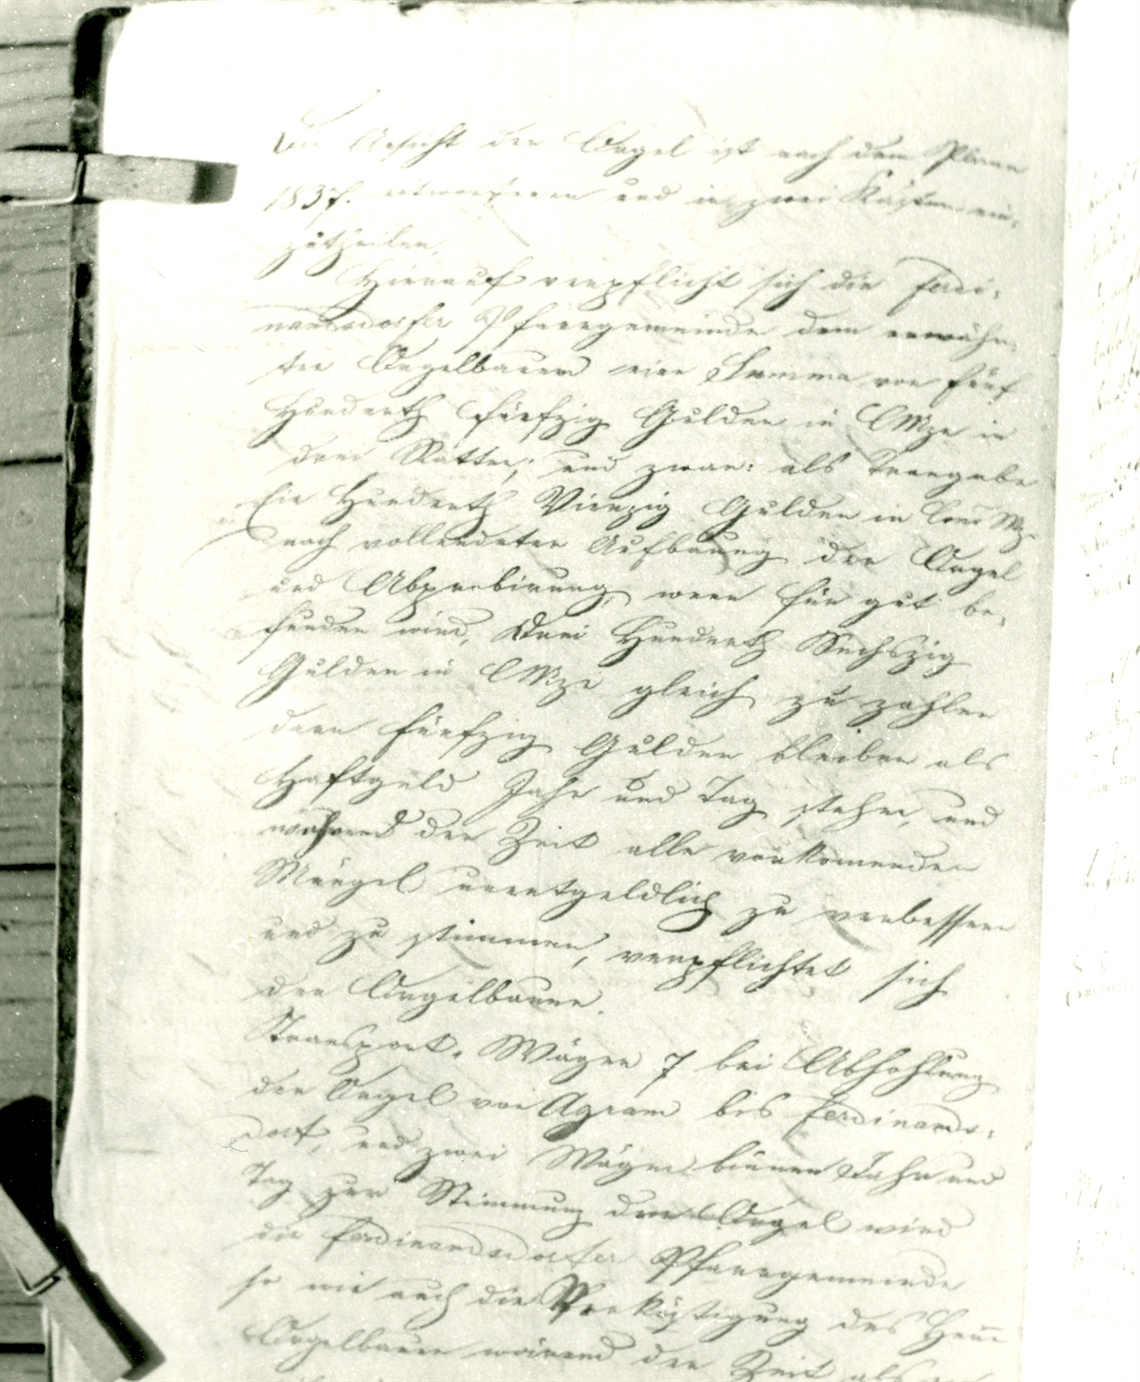 Die Ansicht der Orgel ist nach dem Plane
1837. entworfenen und in zwei Kästen ein-
zutheilen.
Hierauf verpflicht sich die Ferdi-
nandsdorfer Pfarrgemeinde dem erwähn
ten Orgelbauer eine Summa von fünf
Hunderth fünfzig Gulden in CMze in
drei Ratten; und zwar: als Drangabe
Ein Hunderth Vierzig Gulden in Conv Mz
nach vollendeter Aufbauung der Orgel
und Abprobirung, wenn für gut be-
funden wird, Drei Hunderth Sechszig
Gulden in CMze gleich zu zahlen
dann fünfzig Gulden bleiben als
Haftgeld Jahr und Tag stehen, und
während der Zeit alle vorkomenden
Mängel unentgeldlich zu verbessern
und zu stimmen, verpflichtet sich
der Orgelbauer.
Transport-Wägen 7 bei Abhohlung
der Orgel von Agram bis Ferdinands-
dorf, und zwei Wägen binnen Jahr und
Tag zur Stimmung der Orgel wird
die Ferdinandsdorfer Pfarrgemeinde
so wie auch die Verköstigung des Herrn
Orgelbauer wärend der Zeit als